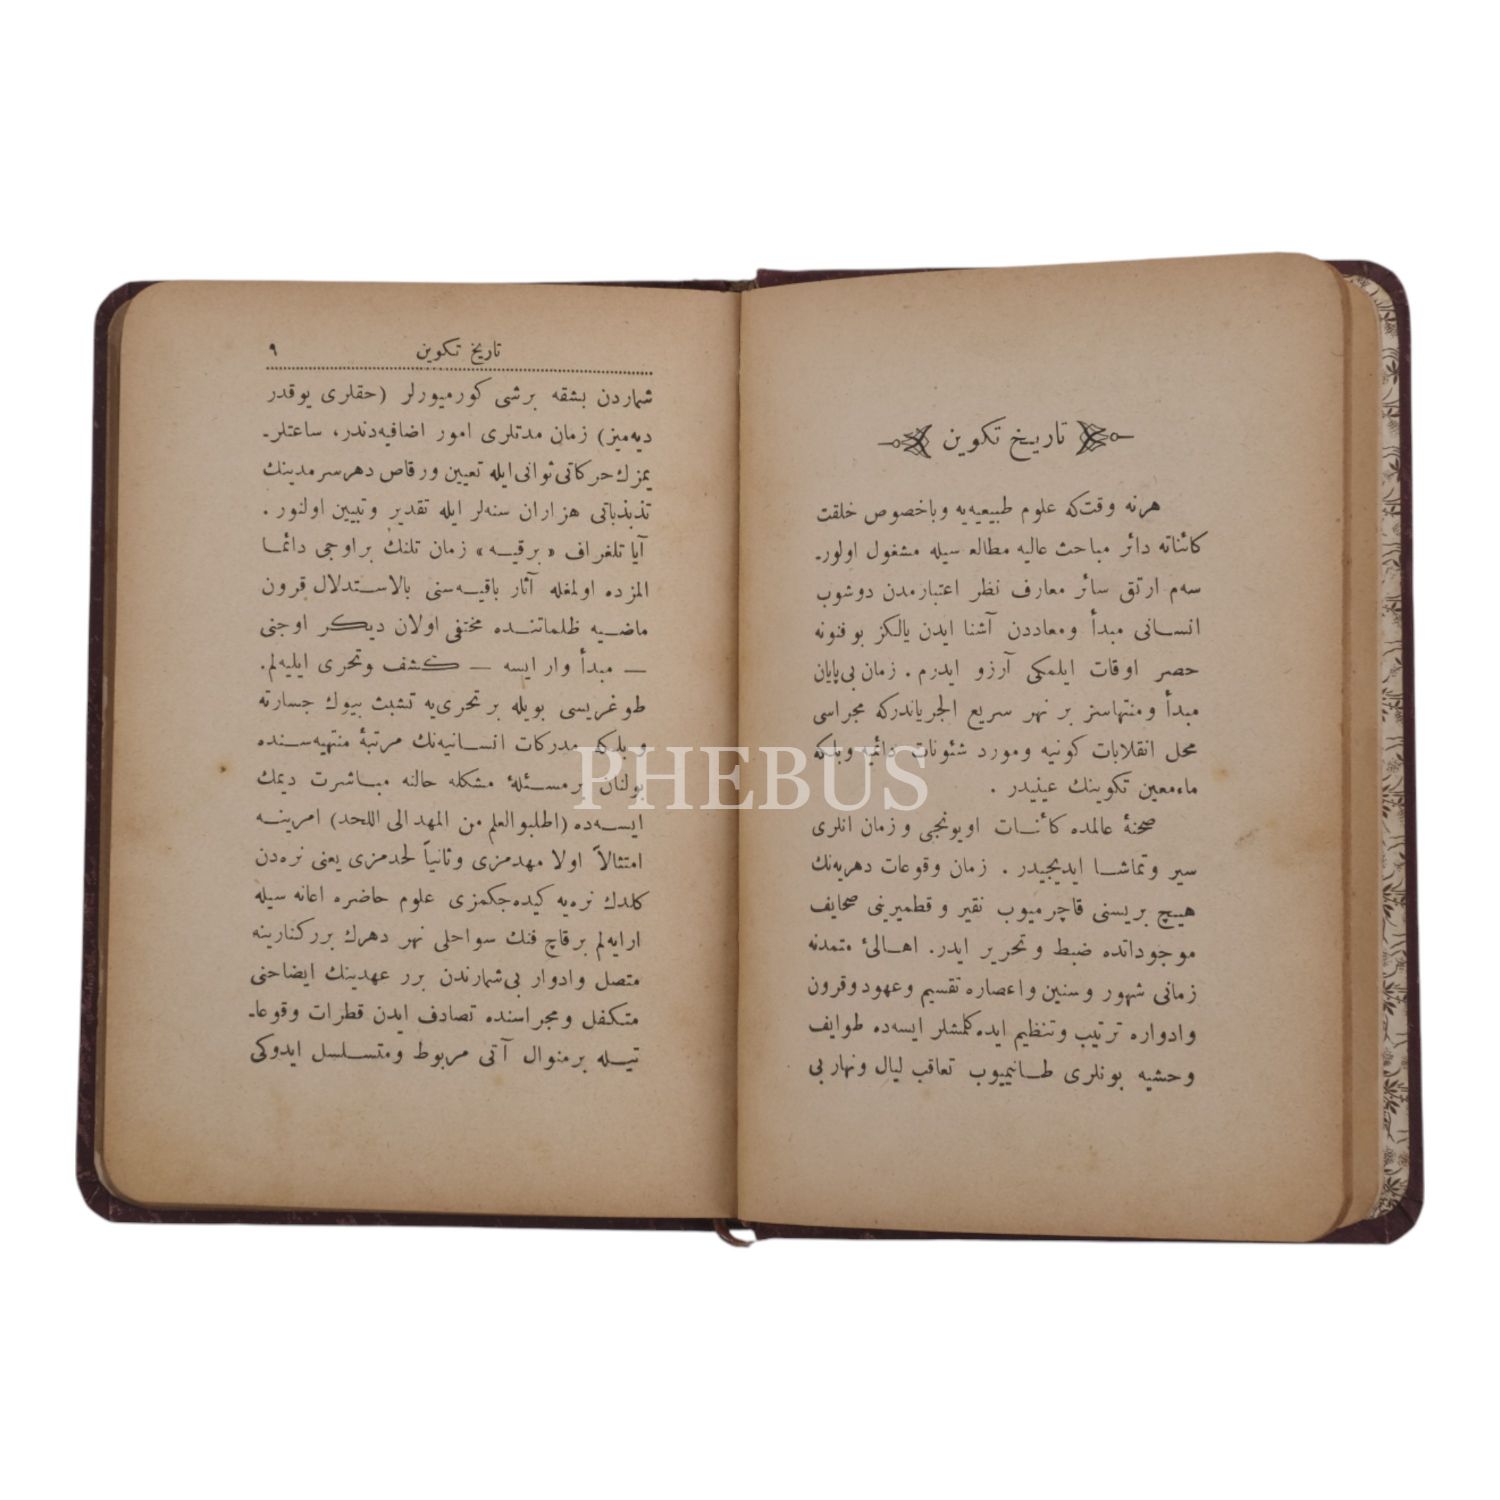 تاریخ تکوین
هرنه وقت‌که علوم طبیعیه‌یه وباخصوص خلقت
کائناته دائر مباحث عالیه مطالعه سیله مشغول اولور-
سه‌م ارتق سائر معارف نظر اعتبارمدن دوشوب
انسانی مبدأ ومعاددن آشنا ایدن یالکز بوفنونه
حصر اوقات ایلمکی آرزو ایدرم . زمان بی‌پایان
مبدأ ومنتهاسز بر نهر سریع الجریاندرکه مجراسی
محل انقلابات کونیه ومورد شئونات دائمیه وبلکه
ماءمعین تکوینك عینیدر .
صحنهٔ عالمده کائنات اویونجی وزمان انلری
سیر وتماشا ایدیجیدر . زمان وقوعات دهریه‌نك
هیچ بریسنی قاچرمیوب نقیر وقطمیرینی صحایف
موجوداتده ضبط وتحریر ایدر. اهالیٔ متمدنه
زمانی شهور وسنین واعصاره تقسیم وعهود وقرون
وادواره ترتیب وتنظیم ایده کلمشلر ایسه‌ده طوایف
وحشیه بونلری طانیمیوب تعاقب لیال ونهار بی
تاریخ تکوین ٩
شماردن بشقه برشی کورمیورلر (حقلری یوقدر
دیه‌میز) زمان مدتلری امور اضافیه‌دندر، ساعتلر-
یمزك حرکاتی ثوانی ایله تعیین ورقاص دهرسرمدینك
تذبذباتی هزاران سنه‌لر ایله تقدیر وتبیین اولنور .
آیا تلغراف «برقیه» زمان تلنك براوجی دائما
المزده اولمغله آثار باقیه‌سنی بالاستدلال قرون
ماضیه ظلماتنده مختفی اولان دیکر اوجنی
— مبدأ وار ایسه — کشف وتحری ایلیه‌لم.
طوغریسی بویله بر تحری‌یه تشبث بیوك جسارته
وبلکه مدرکات انسانیه‌نك مرتبهٔ منتهیه‌سنده
بولنان برمسئلهٔ مشکله حالنه مباشرت دیمك
ایسه‌ده (اطلبوالعلم من المهد الی اللحد) امرینه
امتثالاً اولا مهدمزی وثانیاً لحدمزی یعنی نره‌دن
کلدك نره‌یه کیده‌جکمزی علوم حاضره اعانه سیله
ارایه‌لم برقاچ فنك سواحلی نهر دهرك بررکنارینه
متصل وادوار بی‌شمارندن برر عهدینك ایضاحنی
متکفل ومجراسنده تصادف ایدن قطرات وقوعا-
تیله برمنوال آتی مربوط ومتسلسل ایدوکی
PHEBUS